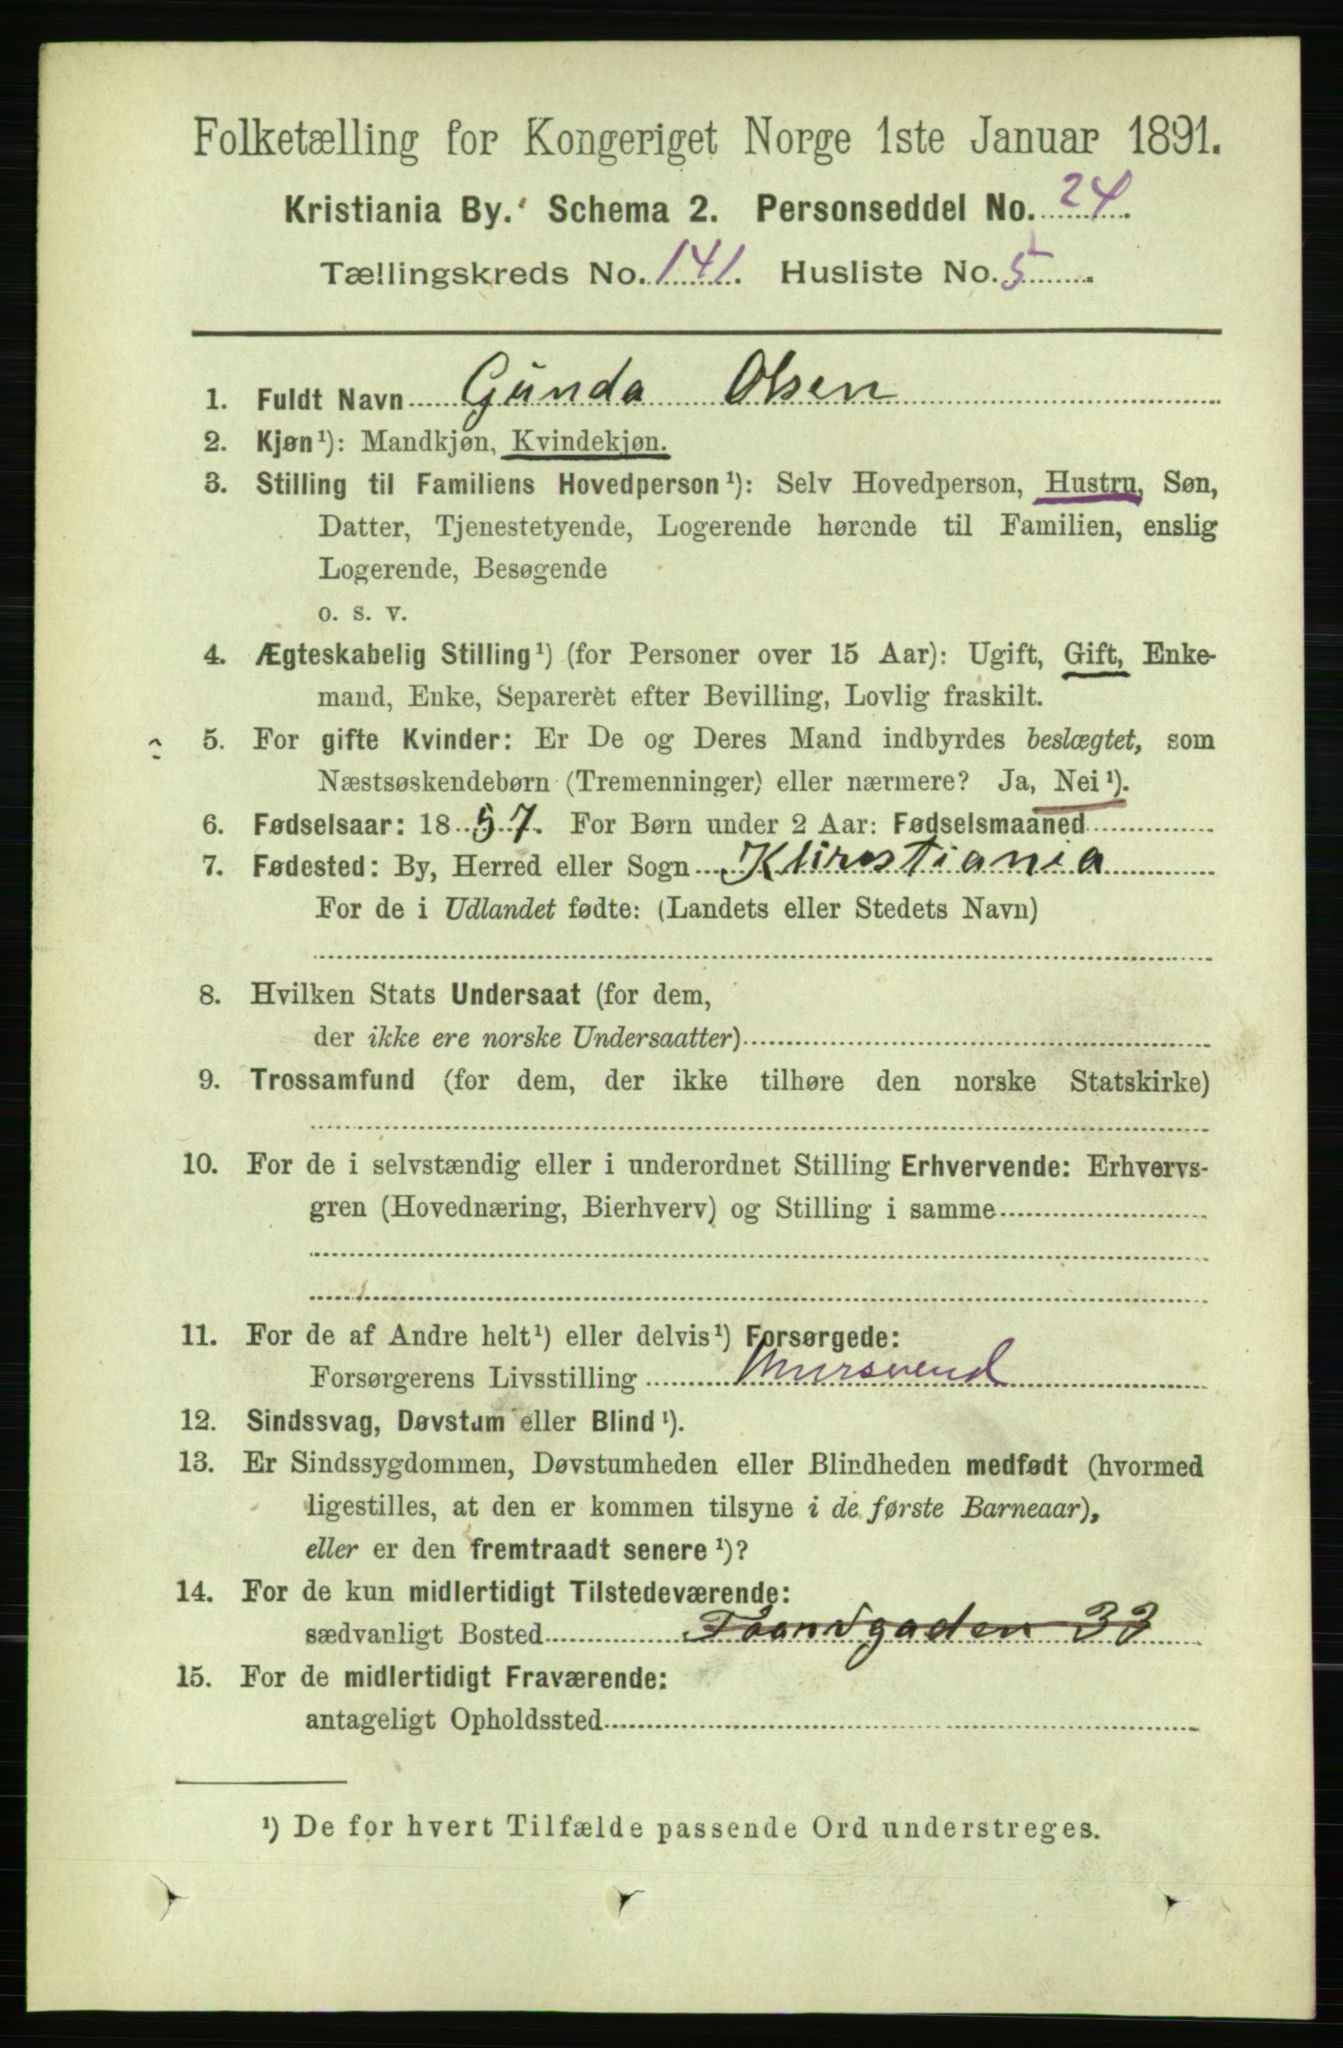 Folketælling for Kongeriget Norge 1ste Januar 1891.
Kristiania By. Schema 2. Personseddel No. 24.
Tællingskreds No. 141. Husliste No. 5.
1. Fuldt Navn Gunda Olsen
2. Kjøn¹): Mandkjøn, Kvindekjøn.
3. Stilling til Familiens Hovedperson¹): Selv Hovedperson, Hustru, Søn,
Datter, Tjenestetyende, Logerende hørende til Familien, enslig
Logerende, Besøgende
o. s. v.
4. Ægteskabelig Stilling¹) (for Personer over 15 Aar): Ugift, Gift, Enke-
mand, Enke, Separeret efter Bevilling, Lovlig fraskilt.
5. For gifte Kvinder: Er De og Deres Mand indbyrdes beslægtet, som
Næstsøskendebørn (Tremenninger) eller nærmere? Ja, Nei¹).
6. Fødselsaar: 1857. For Børn under 2 Aar: Fødselsmaaned
7. Fødested: By, Herred eller Sogn Khrestiania
For de i Udlandet fødte: (Landets eller Stedets Navn)
8. Hvilken Stats Undersaat (for dem,
der ikke ere norske Undersaatter)
9. Trossamfund (for dem, der ikke tilhøre den norske Statskirke)
10. For de i selvstændig eller i underordnet Stilling Erhvervende: Erhvervs-
gren (Hovednæring, Bierhverv) og Stilling i samme
11. For de af Andre helt¹) eller delvis¹) Forsørgede:
Forsørgerens Livsstilling Mursvend
12. Sindssvag, Døvstum eller Blind¹).
13. Er Sindssygdommen, Døvstumheden eller Blindheden medfødt (hvormed
ligestilles, at den er kommen tilsyne i de første Barneaar),
eller er den fremtraadt senere¹)?
14. For de kun midlertidigt Tilstedeværende:
sædvanligt Bosted 33
15. For de midlertidigt Fraværende:
antageligt Opholdssted
¹) De for hvert Tilfælde passende Ord understreges.